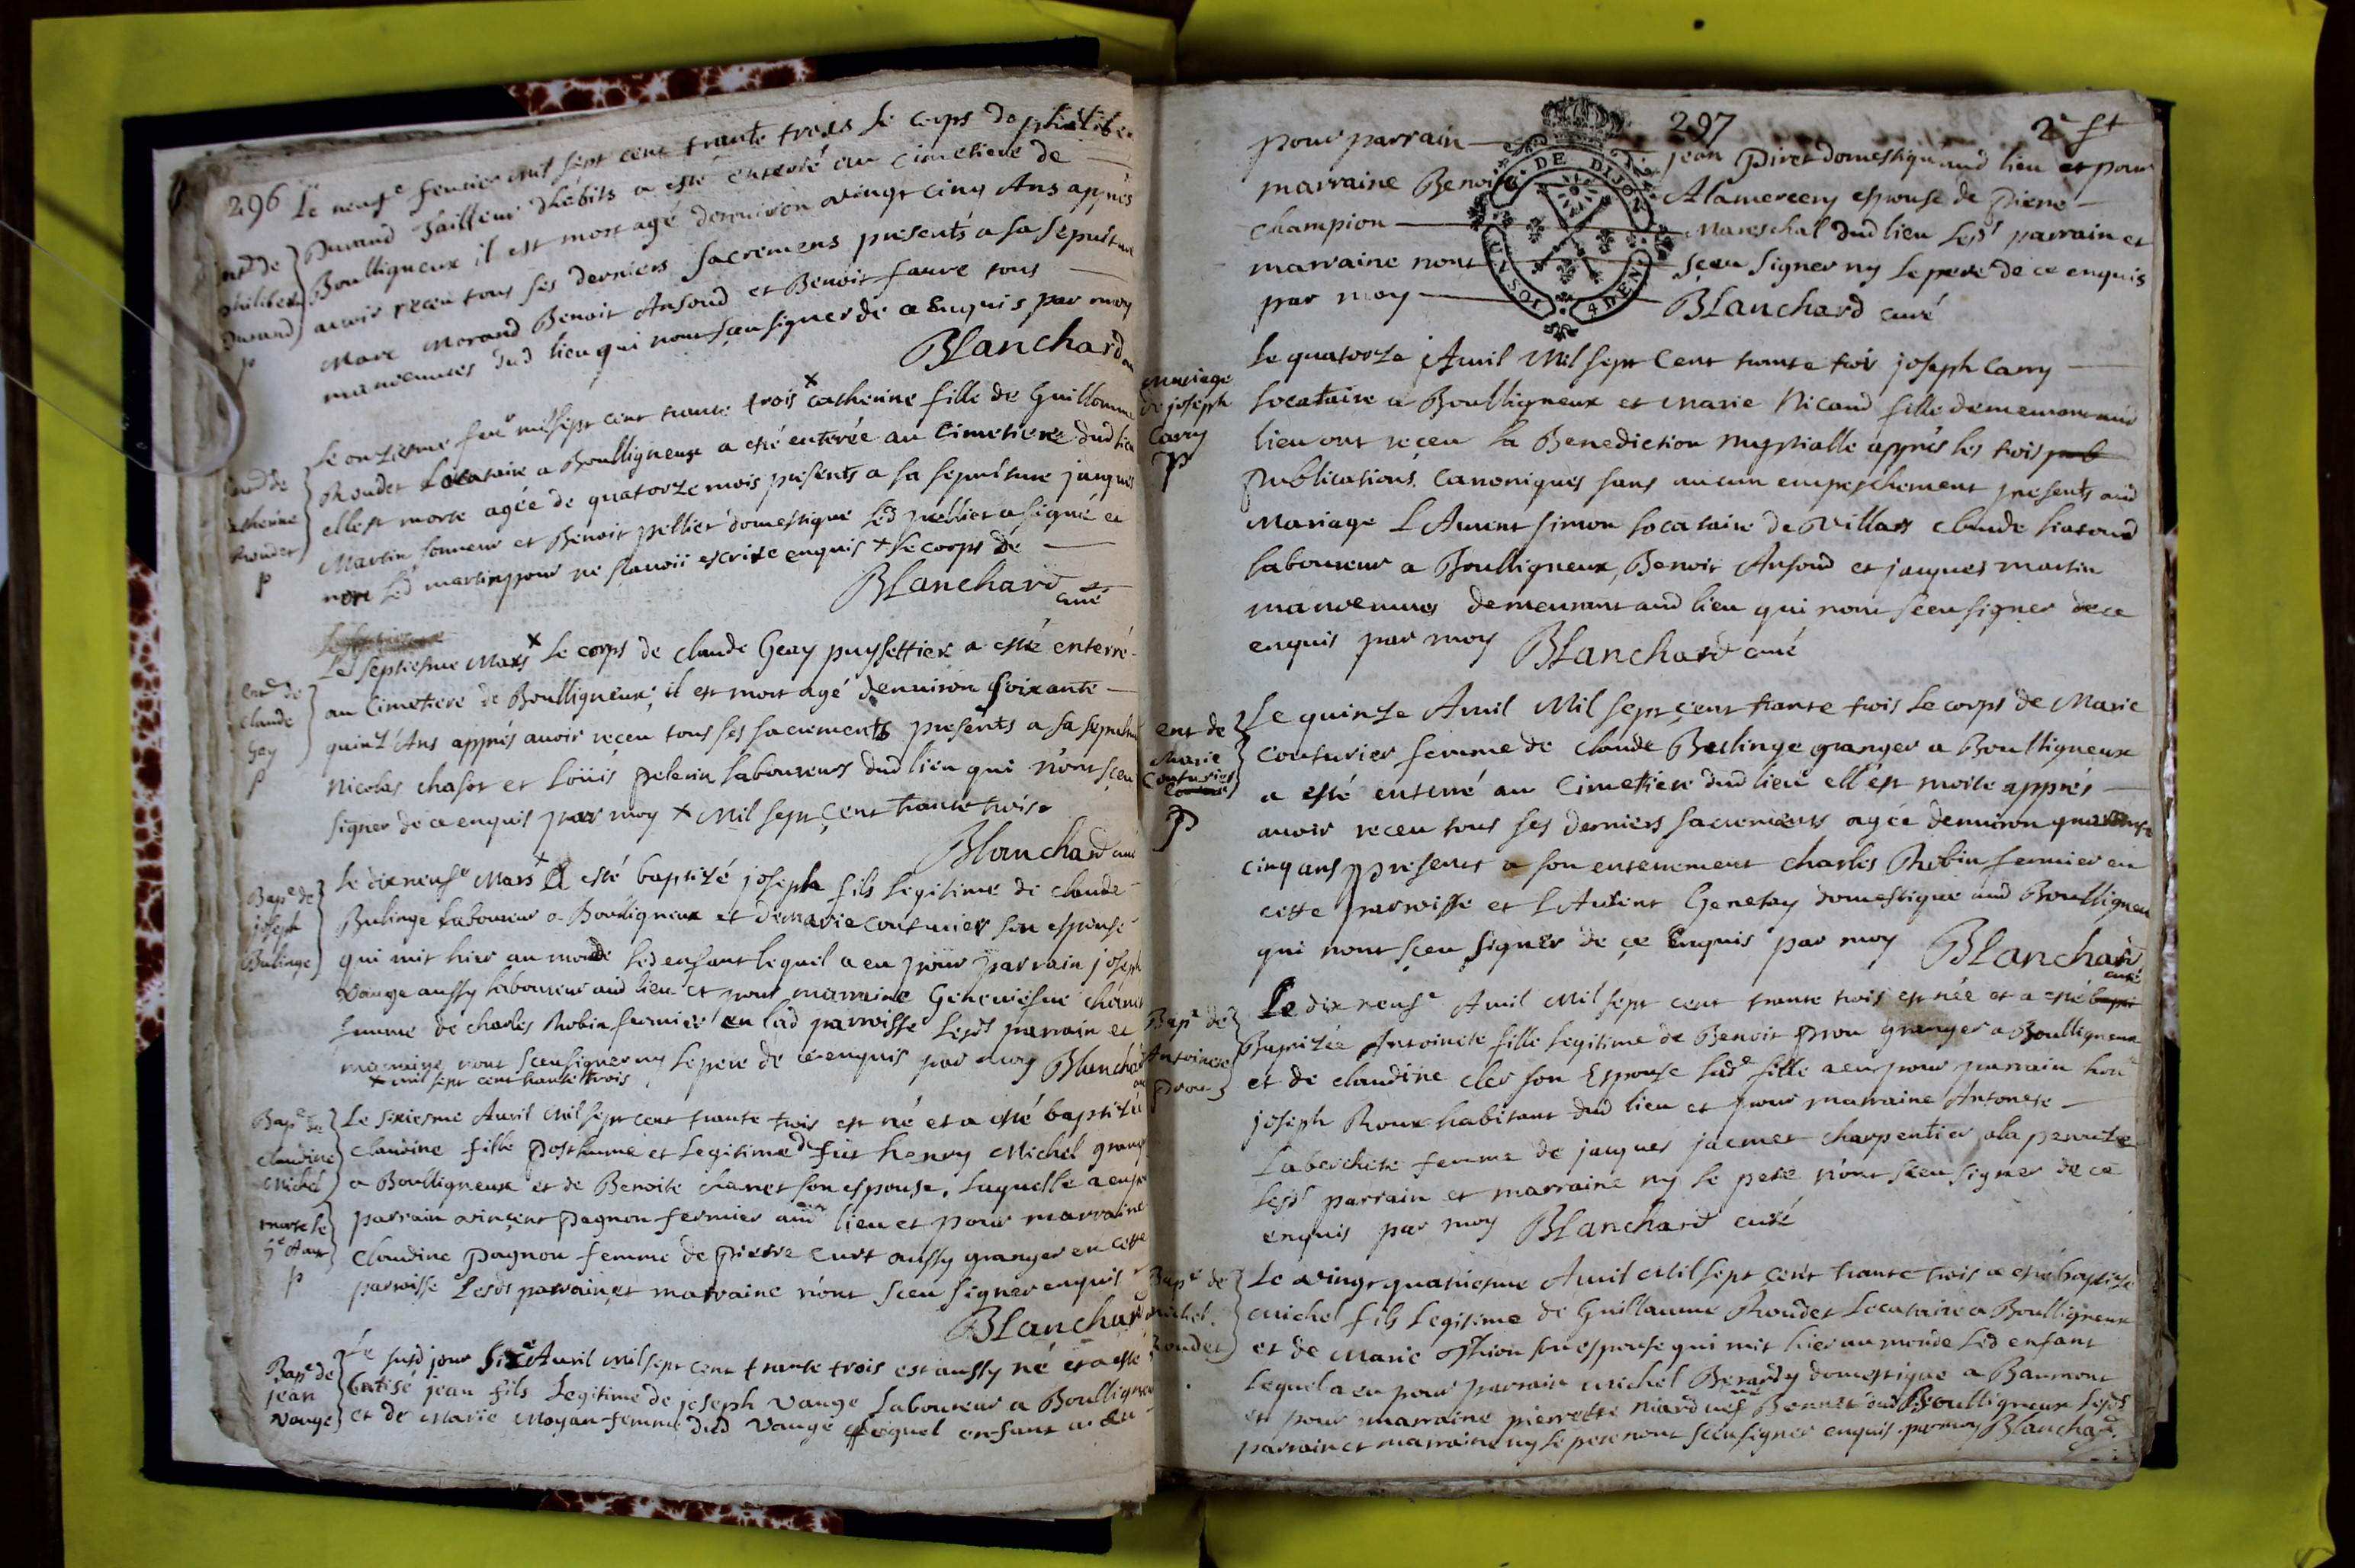 296
Le neufe feurier mil sept cent trante trois le corps de philiber
Durand Tailleur dhebits a esté enterré au Cimetiere de
Boulligneux il est mort agé denuiron vingt cinq Ans apprès
auoir receu tous ses derniers sacremens presents a sa sepulture
Marc Morand Benoit Ansoud et Benoit faure tous
manoeuures dud lieu qui nont sceu signer de ce Enquis par moy
Blanchard
entd de
philibert
Durand
p
Le onziesme feur mil sept cent trante trois x catherine fille de Guillaume
Roudet Locataire a Boulligneux a esté enterée au Cimetiere dud lieu
ellest morte agée de quatorze mois presents a sa sepulture jacques
Martin sonneur et Benoit pellier domestique led pellier a signé et
non led martin pour ne scauoir escrire enquis x le corps de
Blanchard curé
entd de
catherine
Roudet
p
Le septiesme Mars x le corps de claude Geay puysettier a esté enterré
au Cimetiere de Boulligneux; il est mort agé denuiron soixante
quinz'Ans apprés auoir reçeu tous ses sacrements presents a sa sepulture
Nicolas chasot et Loüis pelerin laboureurs dud lieu qui n'ont sceu
signer de ce enquis par moy x Mil sept çent trante trois
Blanchard curé
entd de
claude
Gay
p
Le dixneufe Mars x A esté baptizé joseph fils legitime de claude
Bulinge laboureur a Boulligneux et de marie couturier son espouse
qui mit hier au monde led enfant lequel a eu pour parrain joseph
Vange aussy laboureur aud lieu et pour marraine Geneuiesue
femme de charles Robin fermier en lad parroisse lesds parrain et
marraine nont sceu signer ny le pere de ce enquis par moy Blanchard
x mil sept cent trante trois
Bape de
joseph
Bulinge
Le sixiesme Auril Mil sept cent trante trois est né et a esté baptizée
claudine fille posthume et legitime de fut henry Michel grang
a Boulligneux et de Benoite chanet son espouse. Laquelle a eu pr
parrain vinçent pagnon fermier aud lieu et pour marraine
Claudine pagnon femme de pierre Curt aussy granger en cette
parroisse Lesds parrain et marraine n'ont sceu signer enquis
Blanchard
Bape de
claudine
Michel
morte le
5e
p
Le susd jour sixe Auril Mil sept cent trante trois est aussy né et a esté
batisé jean fils Legitime de joseph Vange Laboureur a Boulligneux
et de Marie Moyan femme dud Vange lequel enfant a eu
Bape de
jean
Vange
297
2e ft
DE DIJON
SOLS
4 DEN
pour parrain jean Piret domestique aud lieu et pour
marraine Benoite Alamercery espouse de Pierre
champion Mareschal dud lieu lesds parrain et
marraine nont sceu signer ny le pere de ce enquis
par moy Blanchard curé
Le quatorze Auril Mil sept cent trante trois joseph Carry
locataire a Boulligneux et marie Nicaud fille demeurant aud
lieu ont reçeu la Benediction nuptialle apprés les trois pub
publications Canoniques sans aucun empeschement presents aud
Mariage LAurent simon locataire de Villars claude
laboureur a Boulligneux, Benoit Ansoud et jacques martin
manoeuures demeurant aud lieu qui nont sceu signer de ce
enquis par moy Blanchard curé
Mariage
de joseph
Carry
p
Le quinze Auril Mil sept çent trante trois le corps de Marie
Couturier femme de Claude Bulinge granger a Boulligneux
a esté enterré au Cimetiere dud lieu ell'est morte apprés
auoir receu tous ses derniers sacremens agée denuiron quarante
cinq ans presents a son enterrement charles Robin fermier en
cette parroisse et LAurent Genetay domestique aud Boulligneux
qui nont sçeu signer de çe Enquis par moy Blanchard
curé
ent de
Marie
Couturier
p
Le dix neufe Auril Mil sept cent trante trois est née et a esté bapti
Baptizée Antoinete fille legitime de Benoit prou granger a Boulligneux
et de claudine cler son Espouse lade fille a eu pour parrain hon
joseph Roux habitant dud lieu et pour marraine Antonete
Laberchere femme de jacques jacmet charpentier a la
lesds parrain et marraine ny le pere n'ont sceu signer de ce
enquis par moy Blanchard curé
Bape de
Antoinete
prou
Le vingt quatriesme Auril Mil sept çent trante trois a esté baptizé
Michel fils Legitime de Guillaume Roudet Locataire a Boulligneux
et de Marie son espouse qui mit hier au monde led enfant
Lequel a eu pour parrain Michel Berardy domestique a Baumont
et pour marraine pierrette Boulligneux lesds
parrain et marraine ny le pere nont sceu signer enquis par moy Blanchard
Bape de
michel
Roudet